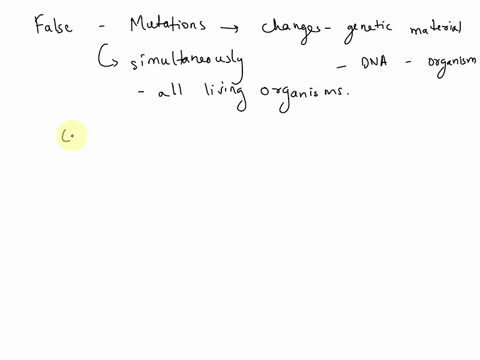 False - Mutations → changes - genetic material
↳ simultaneously - DNA - organism
- all living organisms.
(.